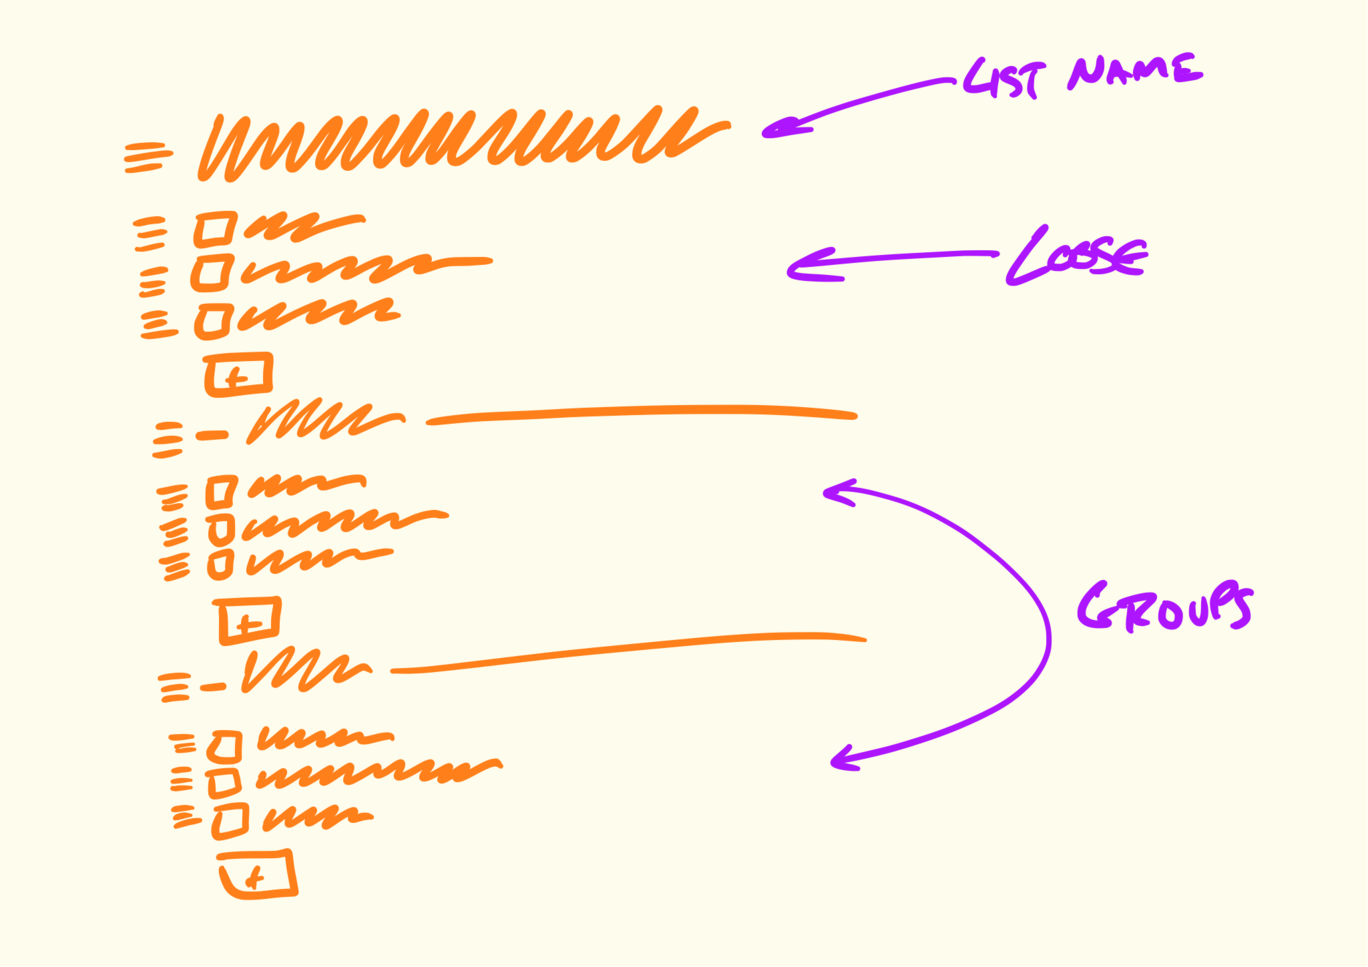 LIST NAME
LOOSE
+
GROUPS
+
+